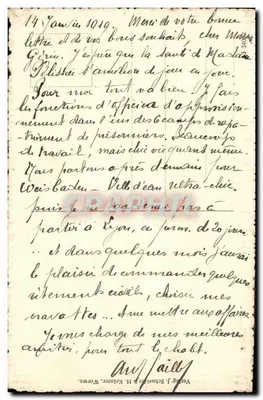 14 Janvier 1919. Merci de votre bonne
lettre et de vos bons souhaits, cher Monsieur
J'espère que la santé de Madame
s'améliore de jour en jour.
Pour moi tout va bien. Je fais
les fonctions d'officier d'approvision-
nement dans l'un des camps de rapa-
triement de prisonniers. Beaucoup
de travail, mais chic quand même.
Nous partons après demain pour
Wiesbaden - Ville d'eau ultra-chic
puis je
partir à Lyon, en perm. de 20 jours
... et dans quelques mois j'aurai
le plaisir de commander quelques
vêtements civils, choisir mes
cravattes ... et me mettre aux affaires.
Je vous charge de mes meilleures
amitiés pour tout le
Verlag J. Schneider, Worms.